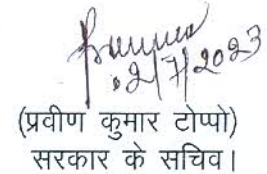 2/7/2023
(प्रवीण कुमार टोप्पो)
सरकार के सचिव।